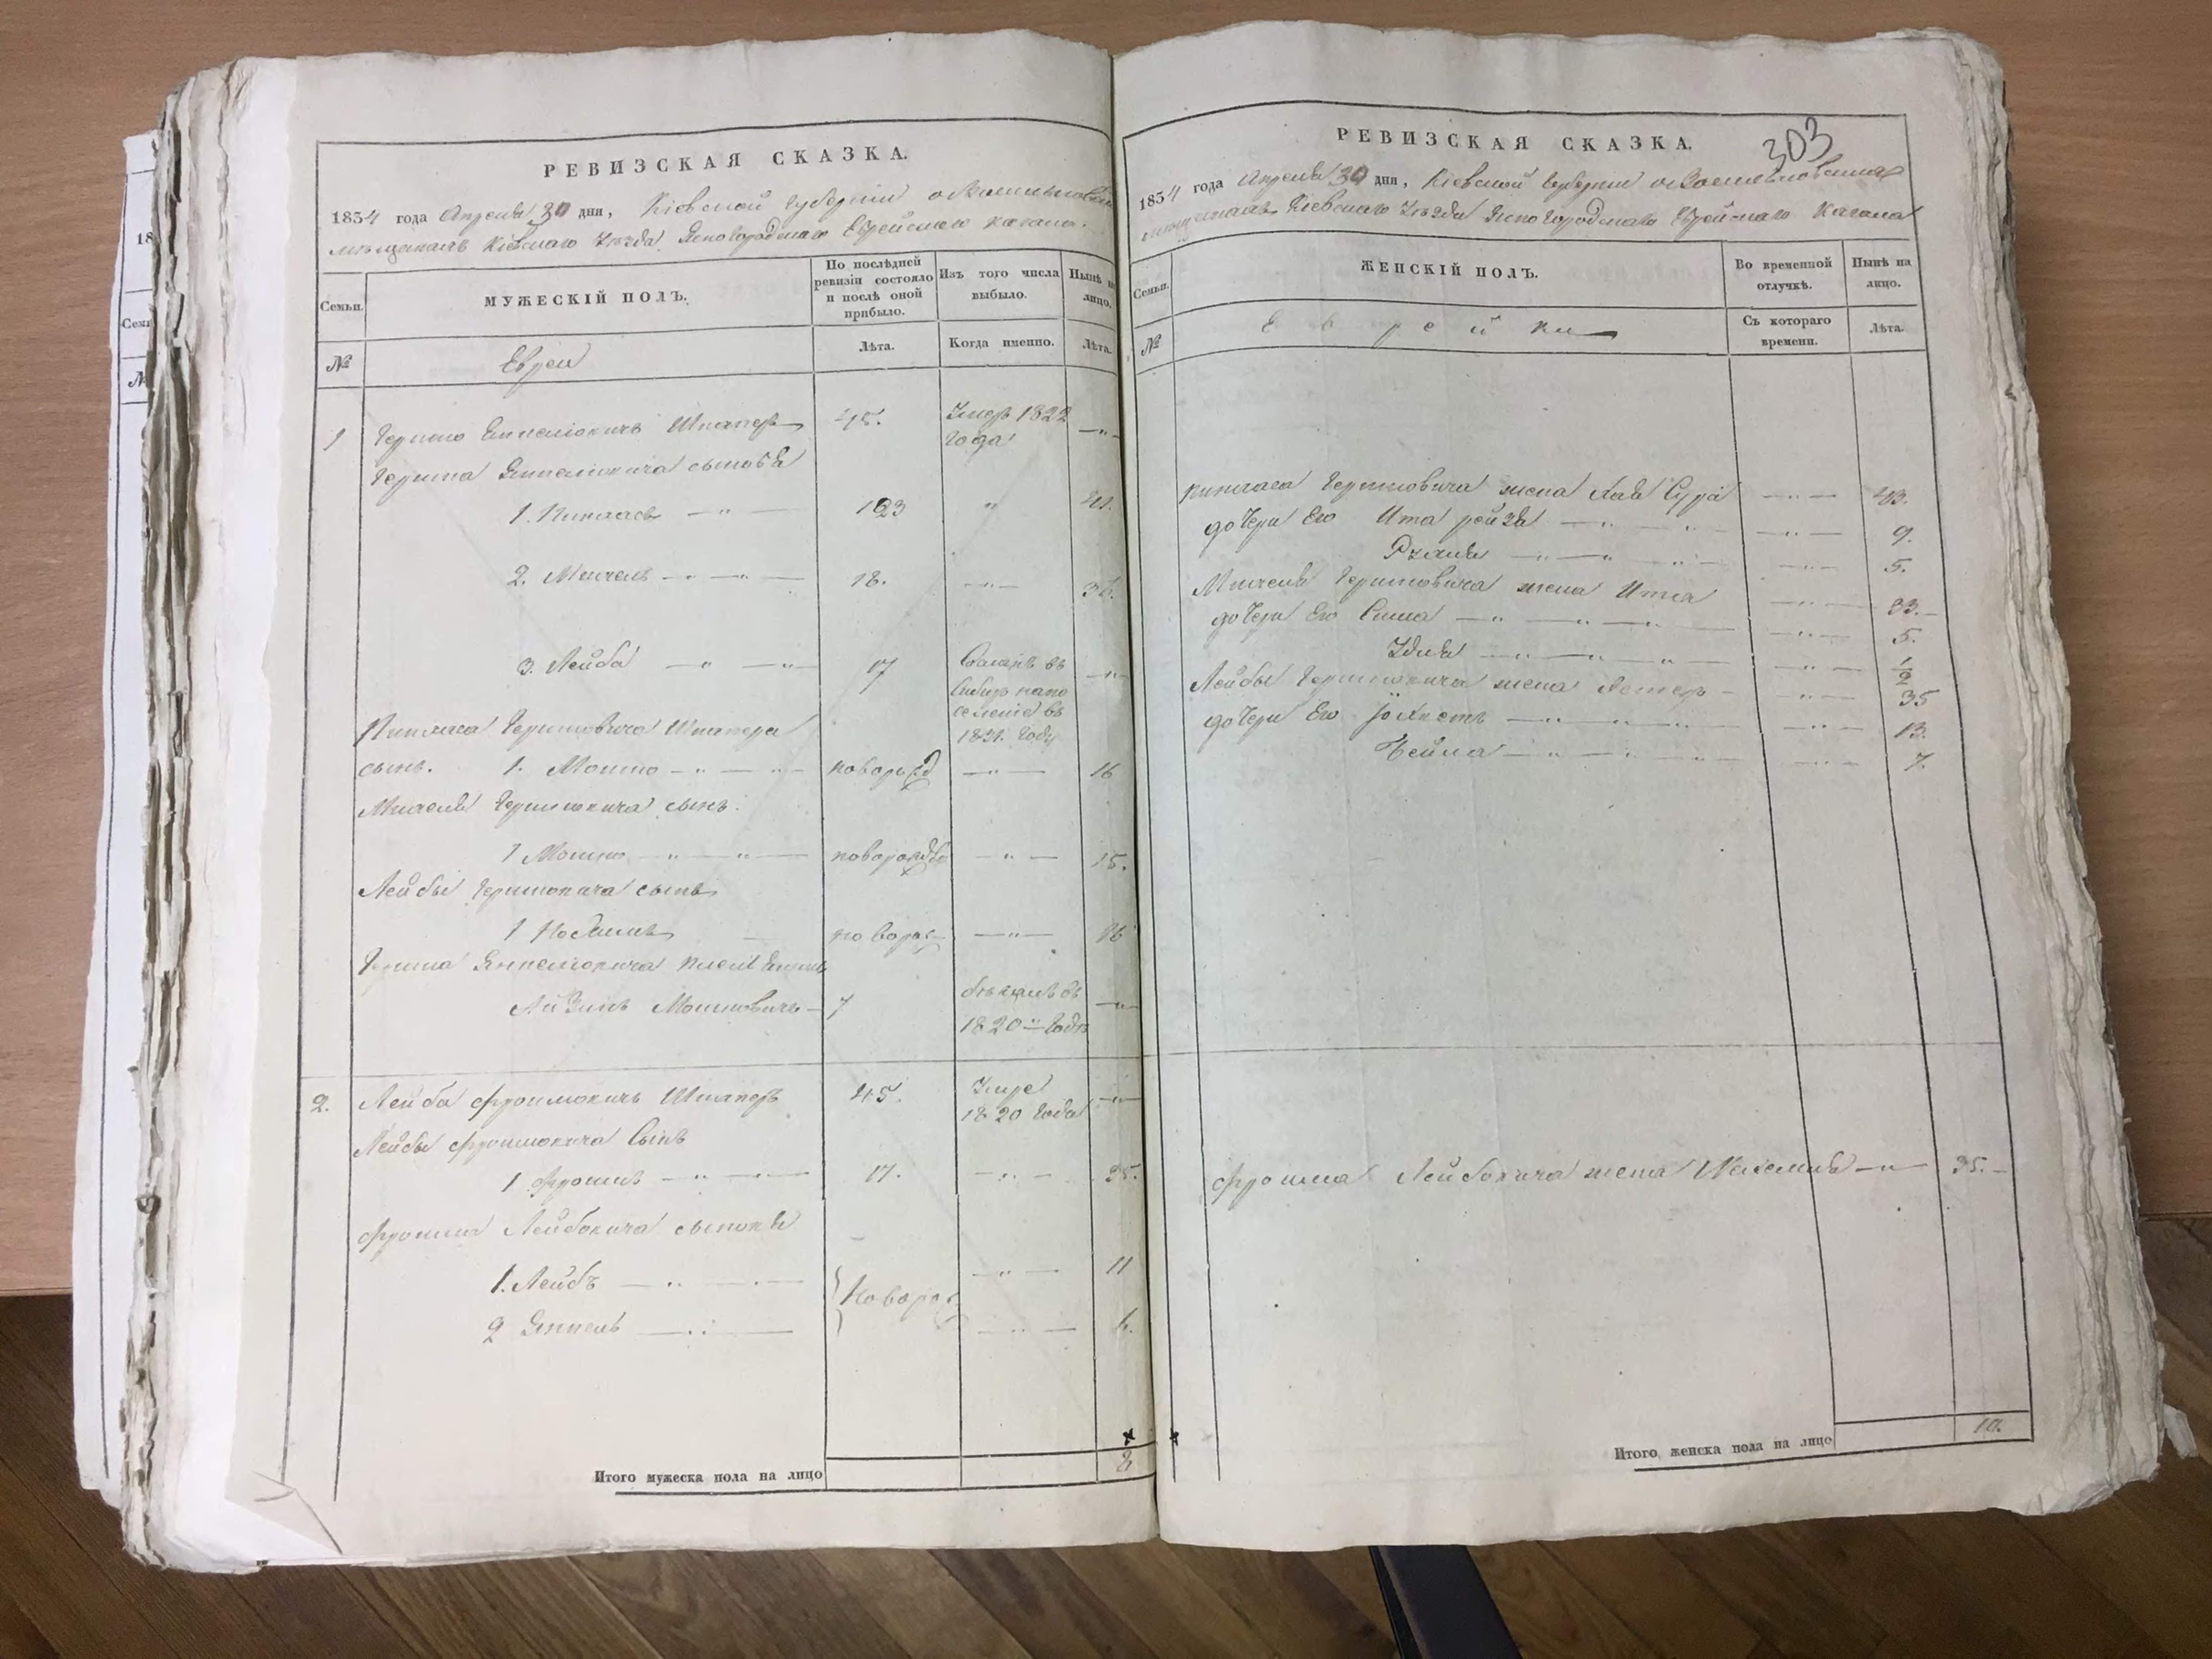 РЕВИЗСКАЯ СКАЗКА.
1834 года Апреля 30 дня, Кіевской губерніи о
мѣщанахъ Кіевскаго уѣзда Ясногородскаго Еврейскаго Кагала.
Семьи.
МУЖЕСКІЙ ПОЛЪ.
По послѣдней ревизіи состояло и послѣ оной прибыло.
Изъ того числа выбыло.
Нынѣ на лицо.
№
Евреи
Лѣта.
Когда именно.
Лѣта.
1 Гершко Янкелiовичъ 45. Умеръ 1822 —"—
года
Гершка Янкелiовича сыновья
1. Пинхасъ — " — 23 " 41.
2. Михель — " — " — 18. — " — 36.
3. Лейба — " — " — 17 Сосланъ въ —"—
Сибирь на по
селеніе въ
1831. году
Пинхаса Гершковича
сынъ. 1. Мошко — " — " — новорожд — " — 16
Михеля Гершковича сынъ.
1 Мошко — " — " — новорожд — " — 15.
Лейбы Гершковича сынъ
1 новорож — " — 16
Герша Янкелiовича племянникъ
Айзикъ Мошковичъ — 7 бѣжалъ въ —"—
1820 годѣ
2. Лейба Фроимовичъ 45. Умре —"—
1820 года
Лейбы Фроимовича Сынъ
1 Фроимъ — " — " — 17. — " — 35.
Фроима Лейбовича сыновья
1. Лейбъ — " — " — — " — 11
Новорож
2 Янкель — " — — " — 6.
Итого мужеска пола на лицо 8
303
РЕВИЗСКАЯ СКАЗКА.
1834 года Апреля 30 дня, Кіевской губерніи о
мѣщанахъ Кіевскаго Уѣзда Ясногородскаго Еврейскаго Кагала
Семьи.
ЖЕНСКІЙ ПОЛЪ.
Во временной отлучкѣ.
Нынѣ на лицо.
№
Еврейки
Съ котораго времени.
Лѣта.
Пинхаса Гершковича жена Хая Сура — " — 43.
дочери Его Ита рейзя — " — " — — " — 9.
— " — " — — " — 5.
Михеля Гершковича жена Итта — " — 33.
дочери Его Сима — " — " — " — — " — 5.
— " — " — " — — " — 1/2
Лейбы Гершковича жена Эстеръ — " — 35
дочери Его — " — " — — " — 13.
Бейла — " — " — " — — " — 7.
Фроима Лейбовича жена — " — 35.
Итого женска пола на лицо 10.